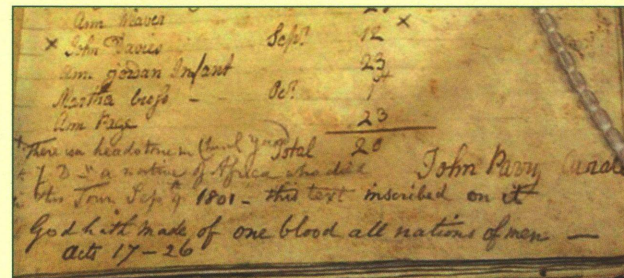 Ann Weaver
x John Davies Sepr. 12 x
Ann Infant 23
Martha Cross - Oct. 1st
Ann Page 23
There is a headstone in Church yard Total 20
J. D. a native of Africa who died John Parry
this Town Sep. 9th 1801 - this text inscribed on it
God hath made of one blood all nations of men -
Acts 17-26